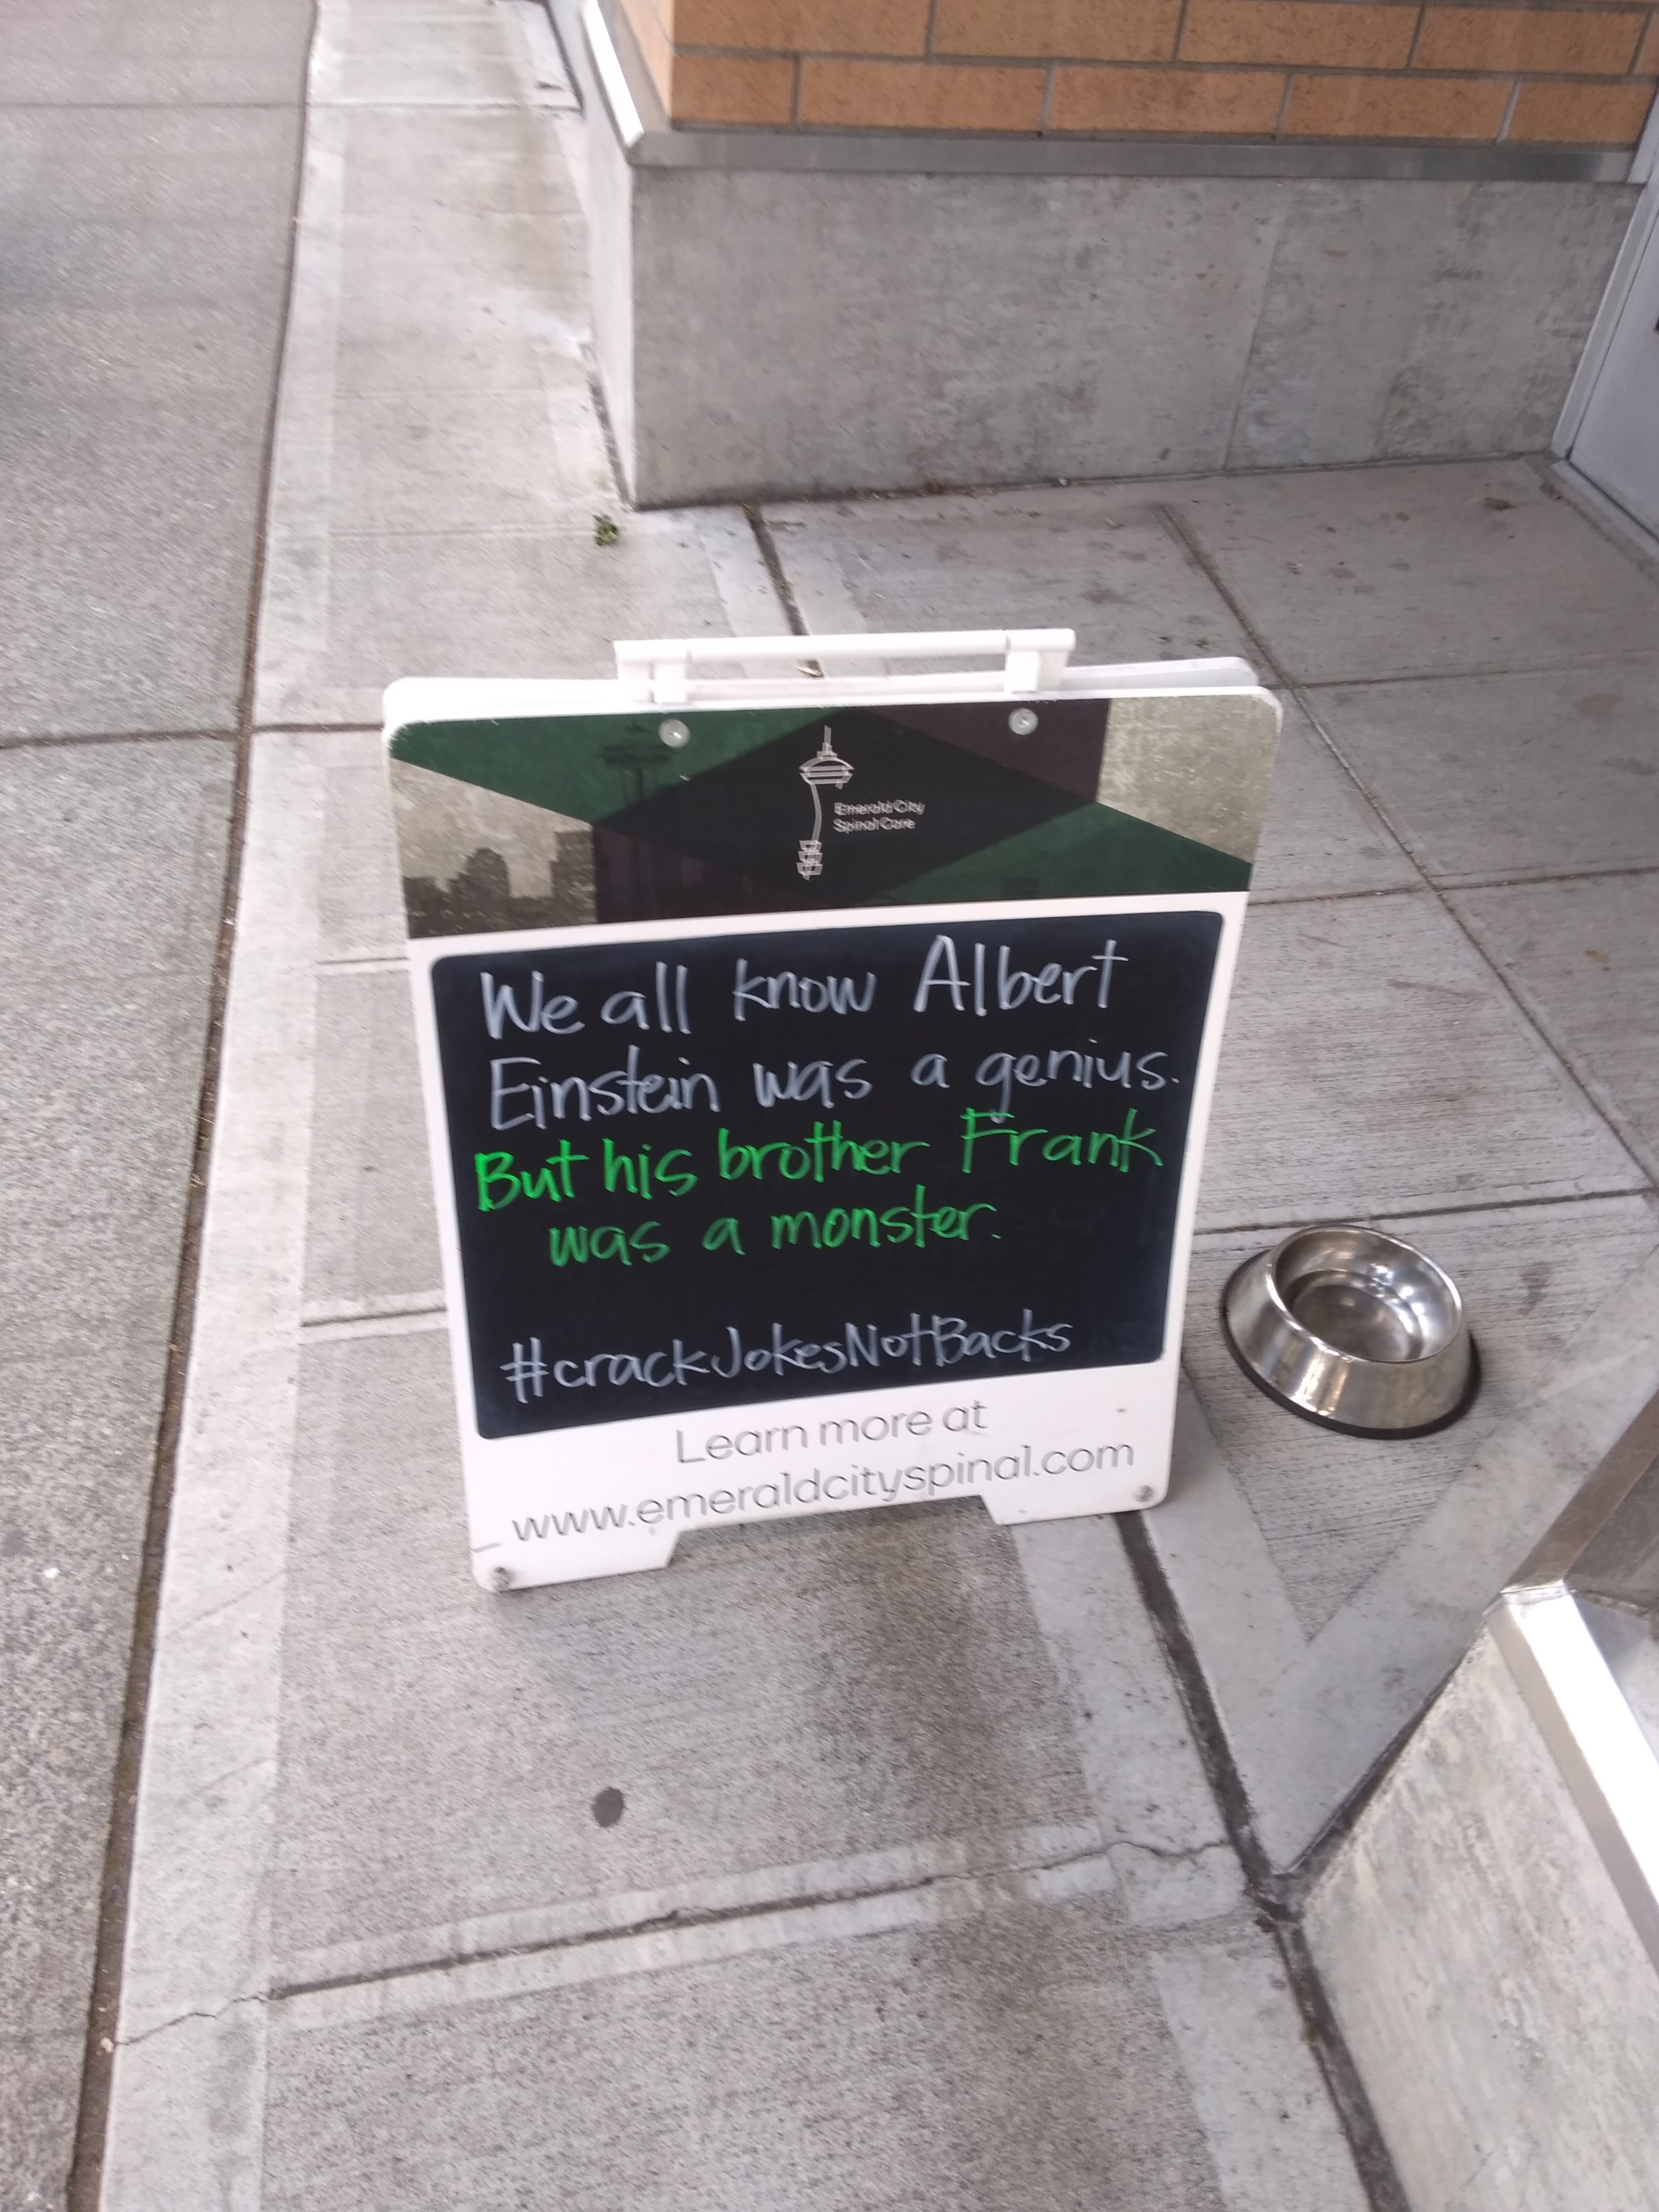 Emerald City
Spinal Care
We all know Albert
Einstein was a genius.
But his brother Frank
was a monster.
#crackJokesNotBacks
Learn more at
www.emeraldcityspinal.com